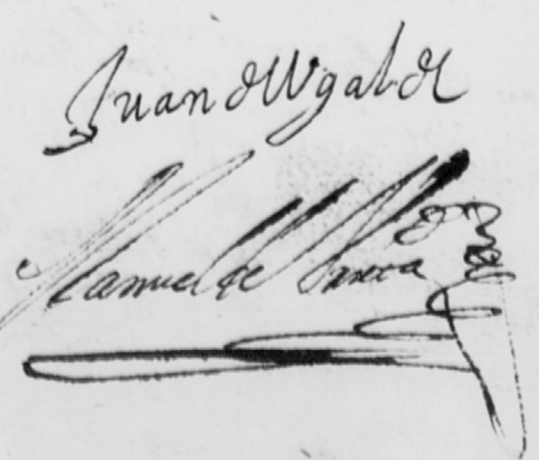 Juan de Ugalde
Manuel de